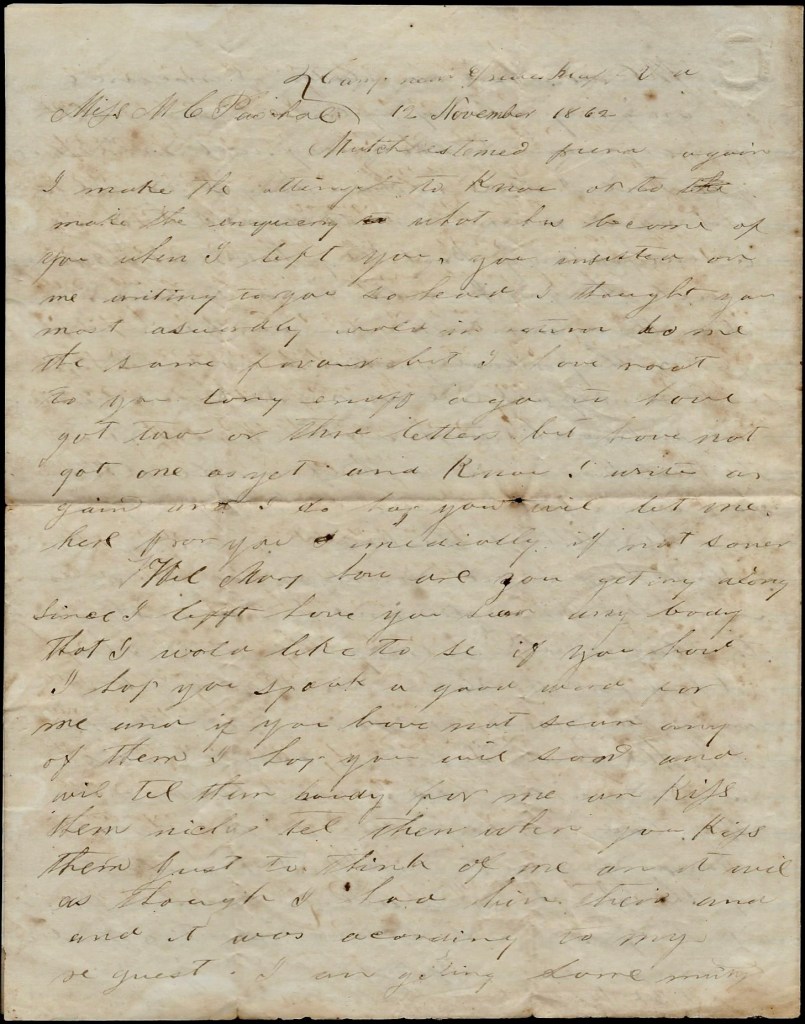 Camp near Va
Miss M C Paschal 12 November 1862
Mutch estemed friend again
I make the attempt to Know or to the
make the enquiery to what has become of
you when I left you, you insisted on
me writing to you so hard I thought you
most asuredly wold in return do me
the same favour but I have roat
to you long enuff ago to have
got two or thre letters but have not
got one as yet and Know I write a
gain and I do hop you will let me
here fror you imediatly if not soner
Wel Mary how are you geting along
since I left have you seen any body
that I wold like to se if you have
I hop you spoak a good word for
me and if you have not sean any
of them I hop you will soon and
wil tel them howdy for me an Kiss
them tel them when you Kiss
them Just to think of me an it wil
as though I had bin their and
and it was acording to my
request. I am geting some